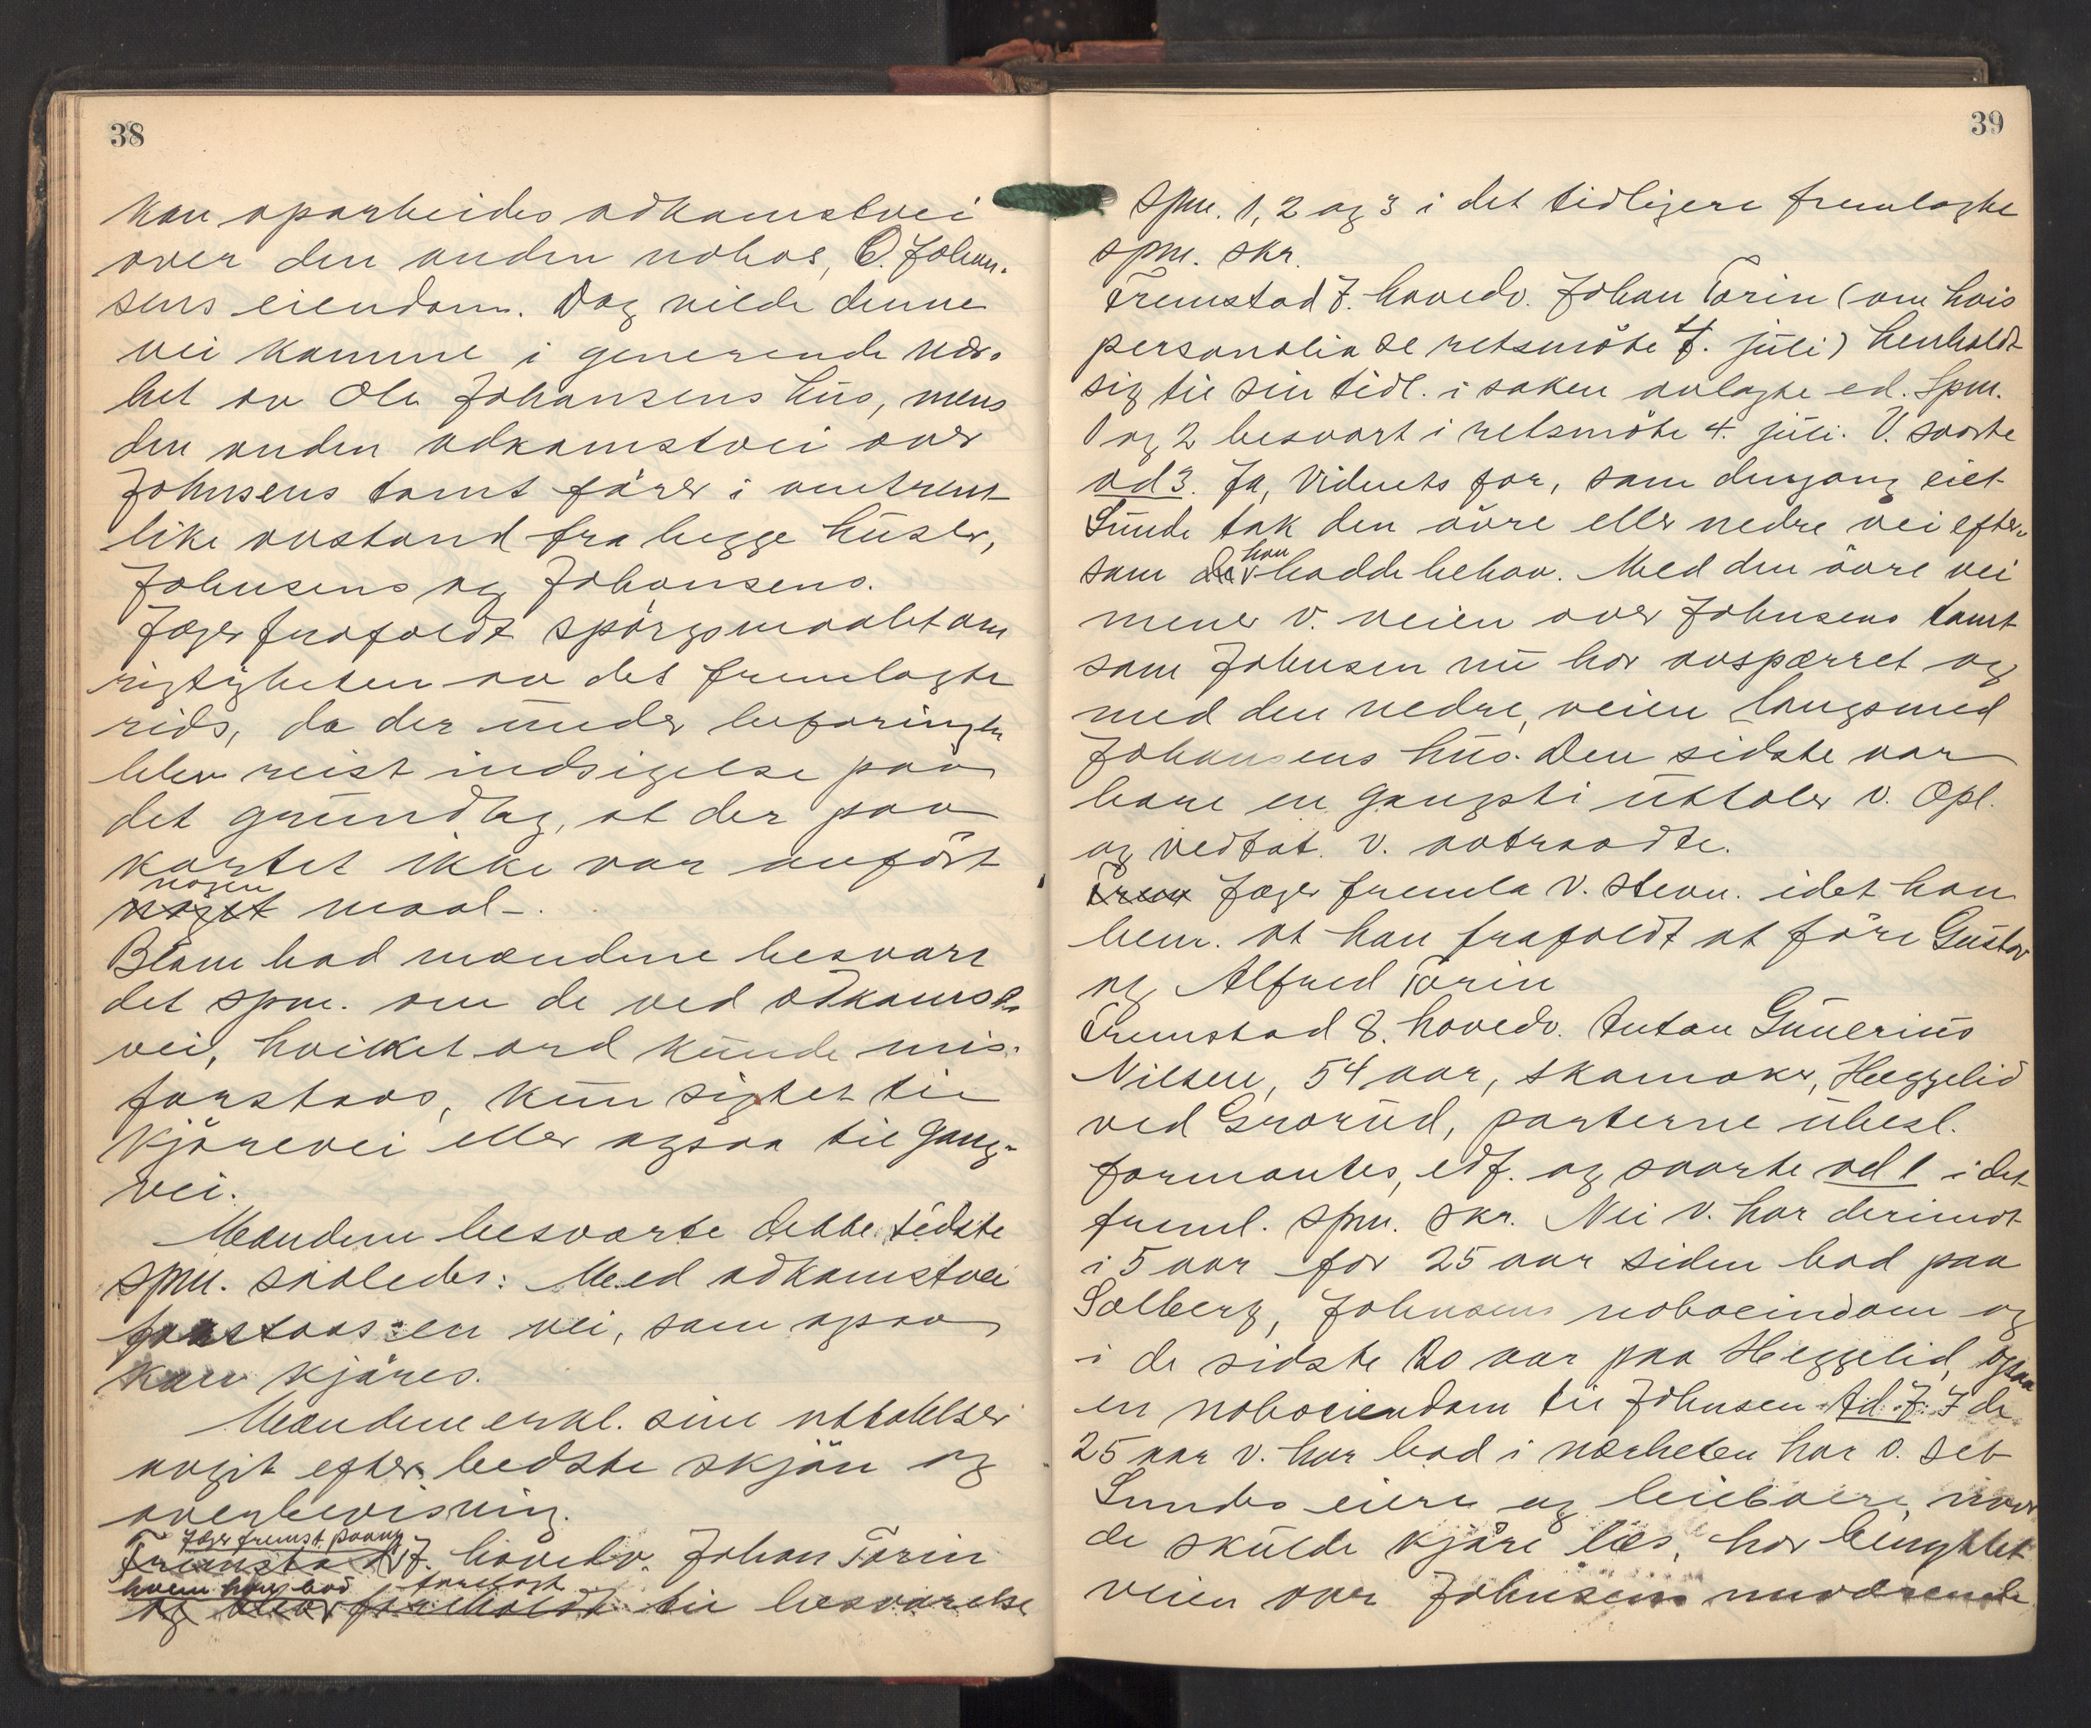 38
kan oparbeides adkomstvei
over den anden nabos, O. Johan-
sens eiendom. Dog vilde denne
vei komme i generende nær-
het av Ole Johansens hus, mens
den anden adkomstvei over
Johnsens tomt fører i omtrent
like avstand fra begge huser,
Johnsens og Johansens.
Jæger frafaldt spørgsmaalet om
rigtigheten av det fremlagte
rids, da der under befaringen
blev reist indsigelse paa
det grundlag, at der paa
kartet ikke var anført
nogen
noget maal-.
Blom bad mændene besvare
det spm. om de ved adkomst-
vei, hvilket ord kunde mis-
forstaaes, kun sigtet til
kjørevei eller ogsaa til gang-
vei.
Mændene besvarte dette sidste
spm. saaledes: Med adkomstvei
forstaas en vei, som ogsaa
kan kjøres.
Mændene erkl. sine uttalelser
avgit efter bedste skjøn og
overbevisning.
Jæger fremst. paany
Fremstod 7. hovedv. Johan Torin
hvem han bad forelagt
og blev foreholdt til besvarelse
39
Spm. 1, 2 og 3 i det tidligere fremlagte
spm. skr.
Fremstod 7. hovedv. Johan Torin (om hvis
personalia se retsmøte 4. juli) henholdt
sig til sin tidl. i saken avlagte ed. Spm.
1 og 2 besvart i retsmøte 4. juli. V. svarte
ad 3. Ja, Vidnets far, som dengang eiet
Sunde tok den øvre eller nedre vei efter-
han
som hadde behov. Med den øvre vei
mener v. veien over Johnsens tomt
som Johnsen nu har avspærret og
med den nedre, veien langsmed
Johansens hus. Den sidste var
bare en gangsti uttaler v. Opl.
og vedtat. V. avtraadte.
Frem Jæger fremla v. stevn. idet han
bem. at han frafaldt at føre Gustav
og Alfred Torin
Fremstod 8. hovedv. Anton Gunerius
Nilsen, 54 aar, skomaker, Heggelid
ved Grorud, parterne ubesl.
formantes, edf. og svarte ad 1 i det
freml. spm. skr. Nei v. har derimot
i 5 aar for 25 aar siden bod paa
Solberg, Johnsens naboeindom og
i de sidste 20 aar paa Heggelid, ogsaa
en naboeiendom til Johnsen. Ad. 7. I de
25 aar v. har bod i nærheten har v. set
Sundes eiere og leieboere, naar
de skulde kjøre læs, har benyttet
veien over Johnsens nuværende